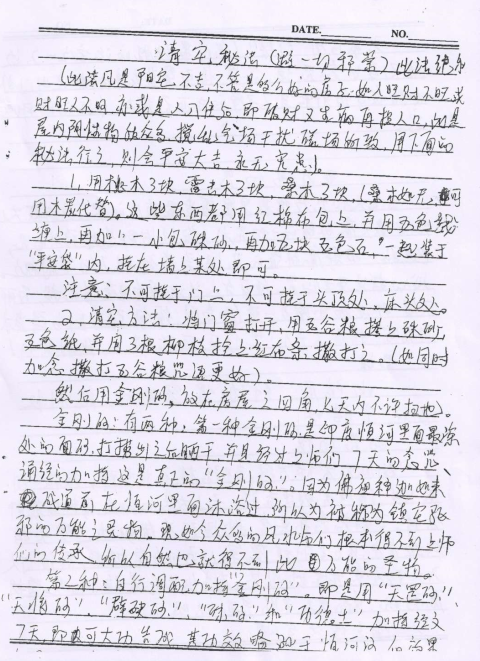 DATE. NO.
清宅秘法(做一切邪祟)此法绝
(此法凡是阳宅不吉,不管是的么好的房子,如人旺财不旺或
财旺人不旺,亦或是人入住后,即破财又生病再损人口,此是
屋内阴性物体众多,搅乱气场干扰磁场所致,用下面的
秘法行之,则会平安大吉永无免患)。
1,用桃木3块,雷击木3块,桑木3块,(桑木如无,可
用木炭代替)。这些东西都用红棉布包上,并用五色线
缠上,再加一小包硃砂,再加五块五色石,一起装于
"平安袋"内,挂在墙上某处即可。
注意:不可挂于门上,不可挂于头顶处,床头处。
2,清宅方法:将门窗打开,用五谷粮拌上硃砂,
五色纸,并用3根柳枝拴上红布条,撒打之。(如同时
加念撒打五谷粮咒语更好)。
然后用金刚砂,放在房屋之四角七天内不许扫地)。
金刚砂:有两种,第一种金刚砂是印度恒河里面最深
处的面砂,打捞出之后晒干并且经过上师们7天的念咒、
诵经的加持这是真正的"金刚砂"。因为佛祖释迦如来
成道前在恒河里面沐浴过,所以为被称为镇宅张
邪的万能之圣物。现如今众多的风水师们根本得不到上师
们的传承,所以自然也就得不到此万能的圣物。
第二种:自行调配加持"金刚砂"。即是用"天罡砂"
"天 砂"、"辟 砂"、"硃砂"和"功德土"加持经文
7天,即可大功告成,其功效略 于恒河沙的效果